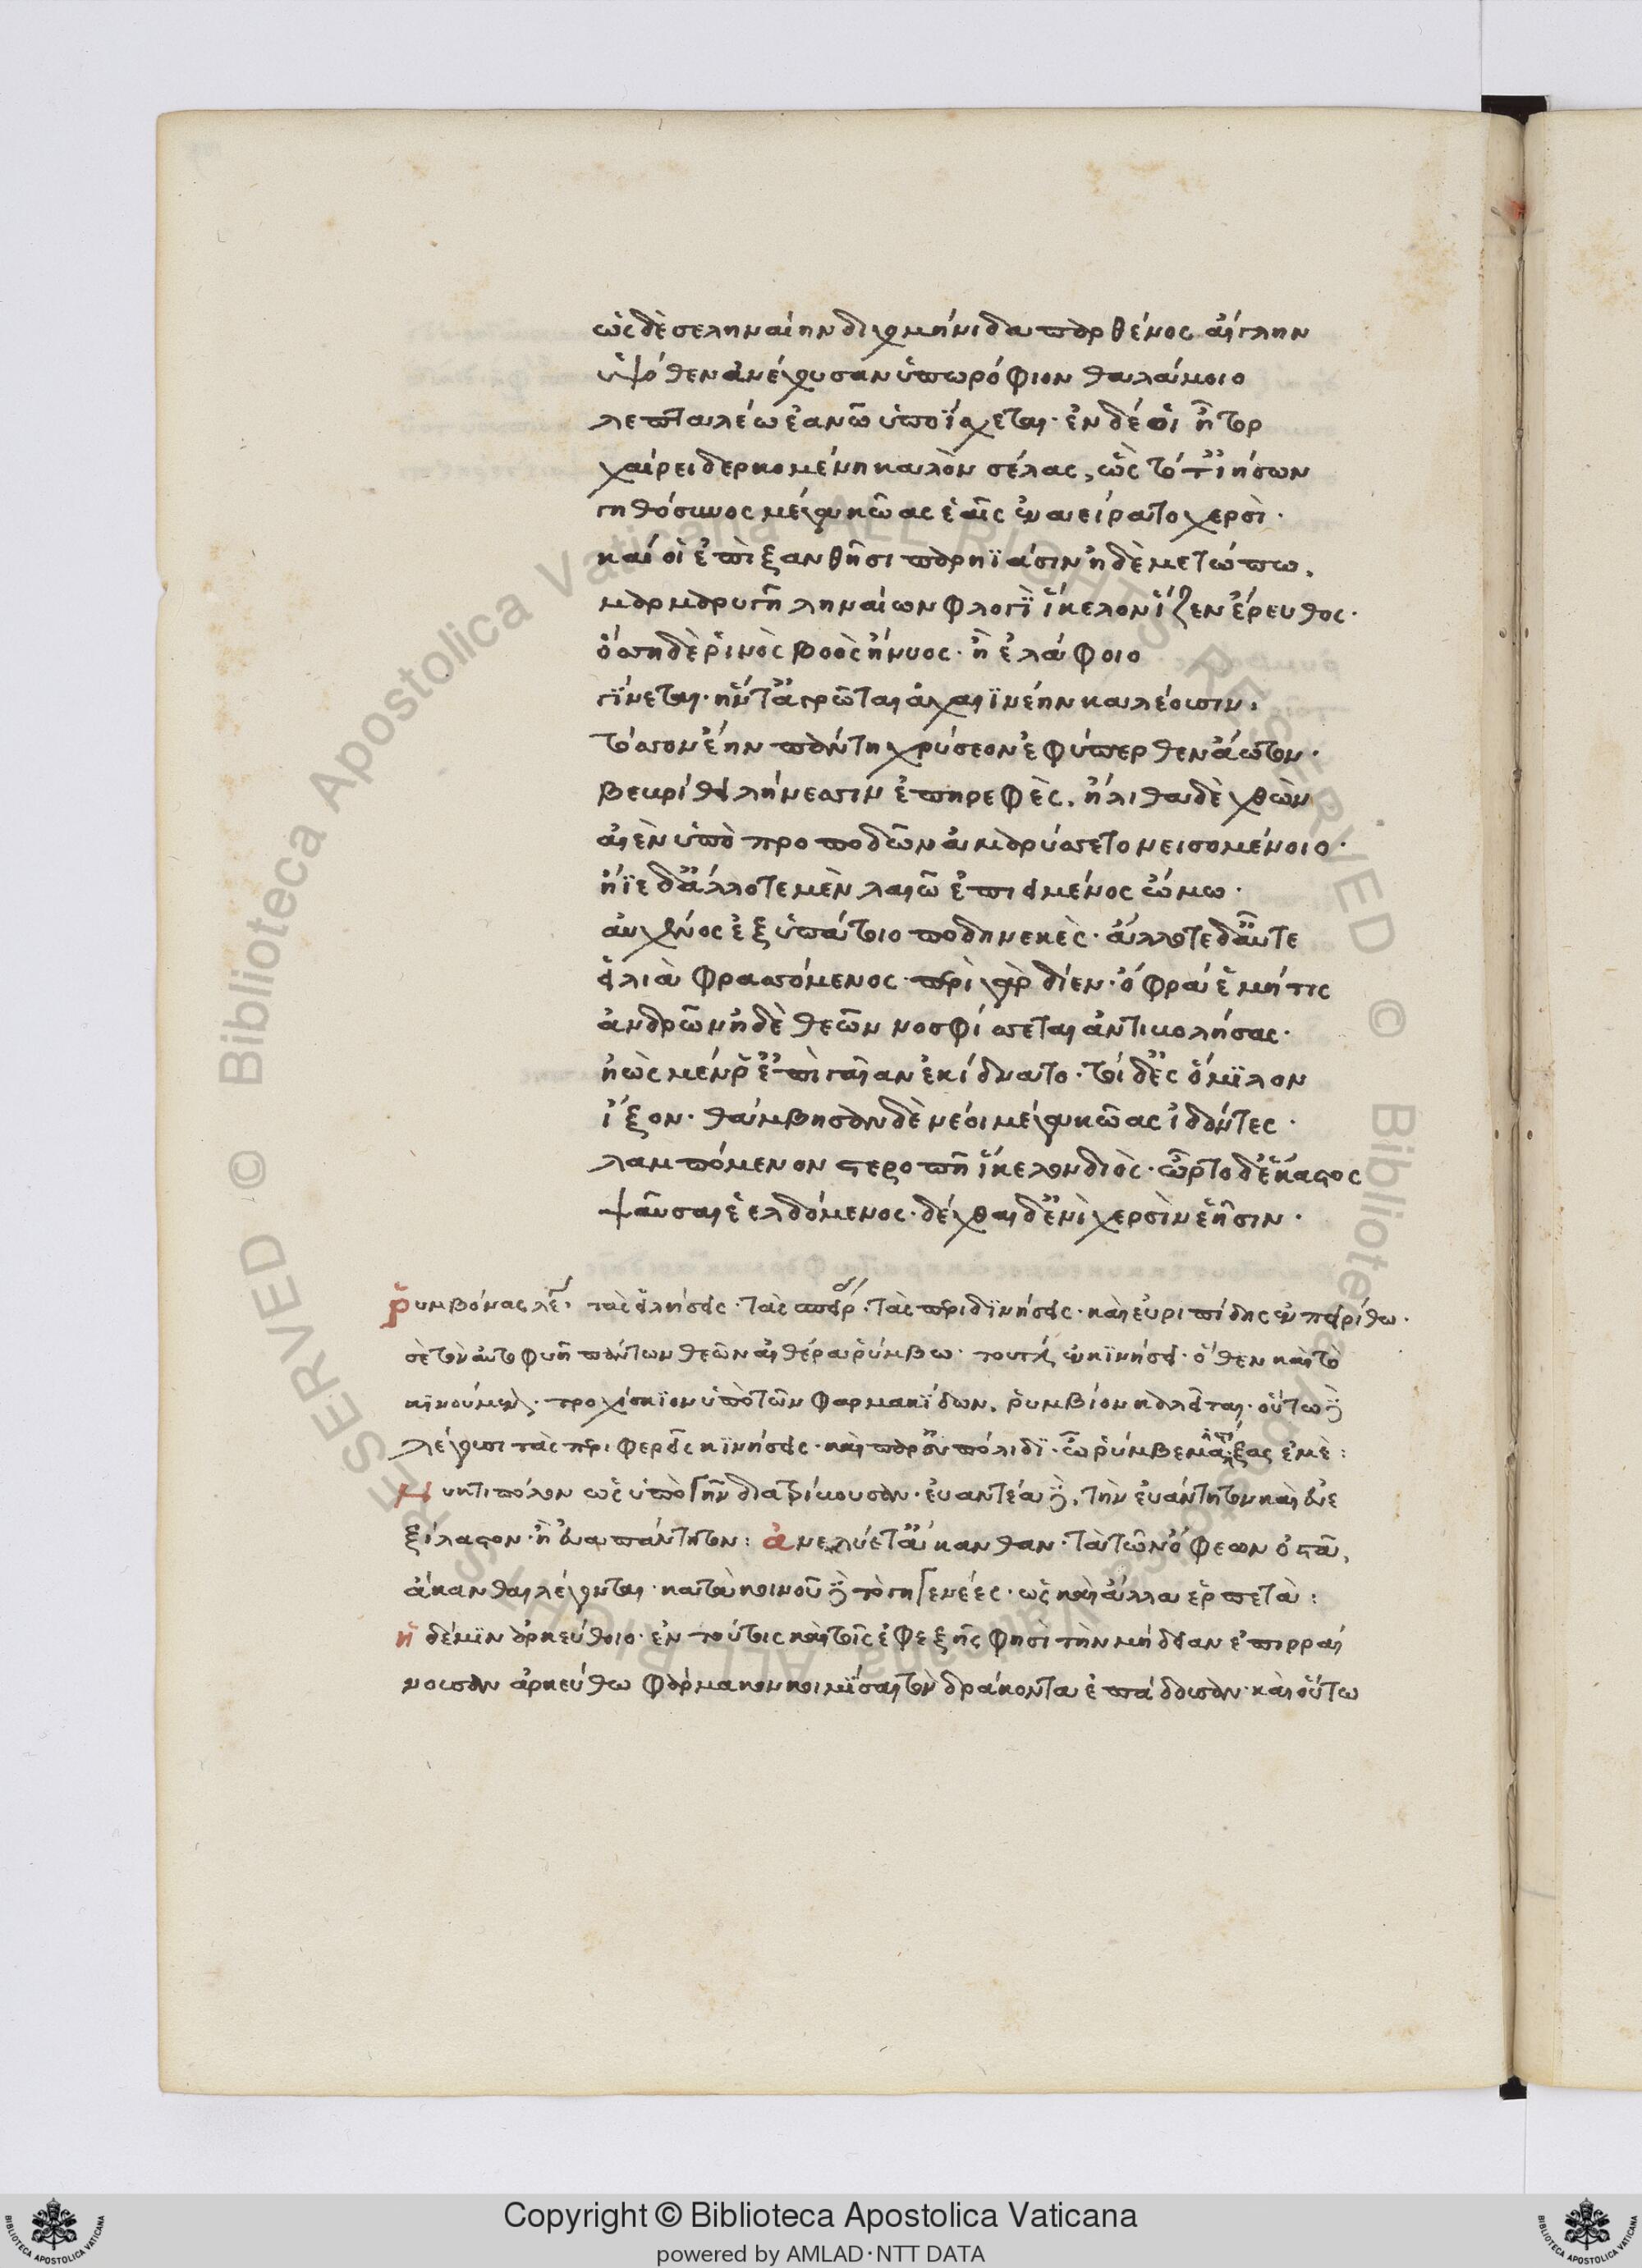 ὡς δὲ σεληναίην διχομήνιδα παρθένος αἴγλην
ὑψόθεν ἀνέχουσαν ὑπωρόφιον θαλάμοιο
λεπταλέω ἑανῶ ὑποΐσχεται· ἐν δέ οἱ ἦτορ
χαίρει δερκομένη καλὸν σέλας, ὣς τότ' ἰήσων
γηθόσυνος μέγα κῶας ἑαῖς ἐναείρατο χερσὶ·
καί οἱ ἐπὶ ξανθῆσι παρηΐασιν ἠδὲ μετώπω,
μαρμαρυγῆ ληναίων φλογῒ ἴκελον ἷζεν ἔρευθος·
ὅσση δὲ ῥινὸς βοὸς ἤνυος· ἢ ἐλάφοιο
γίνεται· ἥν τ' ἀγρῶται ἀχαιϊνέην καλέουσιν,
τόσσον ἔην πάντη χρύσεον ἐφύπερθεν ἄωτον·
βεβρίθει λήνεσσιν ἐπηρεφὲς, ἤλιθα δὲ χθὼν
αἰὲν ὑπὸ προ ποδῶν ἀμαρύσσετο νεισομένοιο·
ἤϊε δ' ἄλλοτε μὲν λαιῶ ἐπιειμένος ὤμω·
αὐχένος ἐξ ὑπάτοιο ποδηνεκὲς· ἄλλοτε δ' αὖτε
εἵλει ἀφασσόμενος· περὶ γὰρ δίεν· ὄφρά ἑ μή τις
ἀνδρῶν ἠδὲ θεῶν νοσφίσσεται ἀντιβολήσας·
ἠὼς μέν ῥ' ἐπὶ γαῖαν ἐκίδνατο· τοὶ δ' ἐς ὅμιλον
ἷξον· θάμβησαν δὲ νέοι μέγα κῶας ἰδόντες·
λαμπόμενον στεροπῆ ἴκελον διὸς· ὦρτο δ' ἕκαστος
ψαῦσαι ἐελδόμενος· δέχθαι δ' ἐνὶ χερσὶν ἑῆσιν·
ῥυμβόνας λέγει· τὰς εἱλήσεις· τὰς σπείρ· τὰς περιδινήσεις· καὶ εὐριπίδης ἐν πειρίθω·
σὲ τὸν αὐτοφυῆ πάντων θεῶν αἰθέρα ῥύμβω· τουτέστιν ἐν κινήσει· ὅθεν καὶ τὸ
κινούμενον· τροχίσκιον ὑπὸ τῶν φαρμακίδων, ῥυμβίον καλεῖται· οὕτω γὰρ
λέγουσι τὰς περιφερεῖς κινήσεις· καὶ παρ' εὐπόλιδι· ὦ ῥύμβε μαστίξας ἐμὲ:
νυκτιπόλον ὡς ὑπὸ γῆν διατρίβουσαν· εὐαντέα δὲ, τὴν εὐάντητον καὶ εὐε
ξίλαστον· ἢ εὐαπάντητον: ἀνελύετ' ἄκανθαν· τὰ τῶν ὄφεων ὀστᾶ,
ἄκανθαι λέγονται· κατὰ κοινοῦ δὲ τὸ γηγενέες· ὡς καὶ ἄλλα ἑρπετὰ:
ἡ δέ μιν ἀρκεύθοιο· ἐν τούτοις καὶ τοῖς ἐφεξῆς φησὶ τὴν μήδειαν ἐπιρραί
νουσαν ἀρκεύθω φάρμακον κοιμίσαι τὸν δράκοντα ἐπάδουσαν· καὶ οὕτω
© Biblioteca Apostolica Vaticana ALL RIGHTS RESERVED © Biblioteca Apostolica Vaticana ALL RIGHTS RESERVED
Copyright © Biblioteca Apostolica Vaticana
powered by AMLAD·NTT DATA